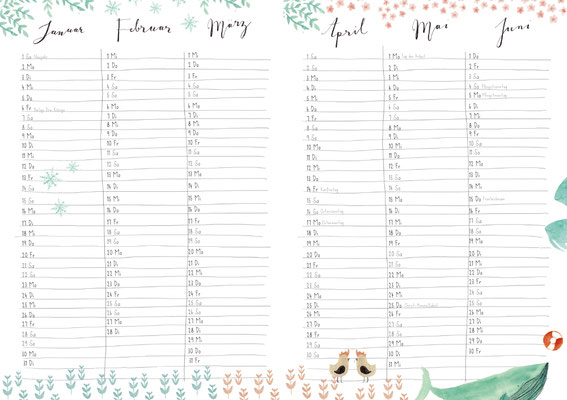 Januar
1 So Neujahr
2 Mo
3 Di
4 Mi
5 Do
6 Fr Heilige Drei Könige
7 Sa
8 So
9 Mo
10 Di
11 Mi
12 Do
13 Fr
14 Sa
15 So
16 Mo
17 Di
18 Mi
19 Do
20 Fr
21 Sa
22 So
23 Mo
24 Di
25 Mi
26 Do
27 Fr
28 Sa
29 So
30 Mo
31 Di
Februar
1 Mi
2 Do
3 Fr
4 Sa
5 So
6 Mo
7 Di
8 Mi
9 Do
10 Fr
11 Sa
12 So
13 Mo
14 Di
15 Mi
16 Do
17 Fr
18 Sa
19 So
20 Mo
21 Di
22 Mi
23 Do
24 Fr
25 Sa
26 So
27 Mo
28 Di
März
1 Mi
2 Do
3 Fr
4 Sa
5 So
6 Mo
7 Di
8 Mi
9 Do
10 Fr
11 Sa
12 So
13 Mo
14 Di
15 Mi
16 Do
17 Fr
18 Sa
19 So
20 Mo
21 Di
22 Mi
23 Do
24 Fr
25 Sa
26 So
27 Mo
28 Di
29 Mi
30 Do
31 Fr
April
1 Sa
2 So
3 Mo
4 Di
5 Mi
6 Do
7 Fr
8 Sa
9 So
10 Mo
11 Di
12 Mi
13 Do
14 Fr Karfreitag
15 Sa
16 So Ostersonntag
17 Mo Ostermontag
18 Di
19 Mi
20 Do
21 Fr
22 Sa
23 So
24 Mo
25 Di
26 Mi
27 Do
28 Fr
29 Sa
30 So
Mai
1 Mo Tag der Arbeit
2 Di
3 Mi
4 Do
5 Fr
6 Sa
7 So
8 Mo
9 Di
10 Mi
11 Do
12 Fr
13 Sa
14 So
15 Mo
16 Di
17 Mi
18 Do
19 Fr
20 Sa
21 So
22 Mo
23 Di
24 Mi
25 Do Christi Himmelfahrt
26 Fr
27 Sa
28 So
29 Mo
30 Di
31 Mi
Juni
1 Do
2 Fr
3 Sa
4 So Pfingstsonntag
5 Mo Pfingstmontag
6 Di
7 Mi
8 Do
9 Fr
10 Sa
11 So
12 Mo
13 Di
14 Mi
15 Do Fronleichnam
16 Fr
17 Sa
18 So
19 Mo
20 Di
21 Mi
22 Do
23 Fr
24 Sa
25 So
26 Mo
27 Di
28 Mi
29 Do
30 Fr